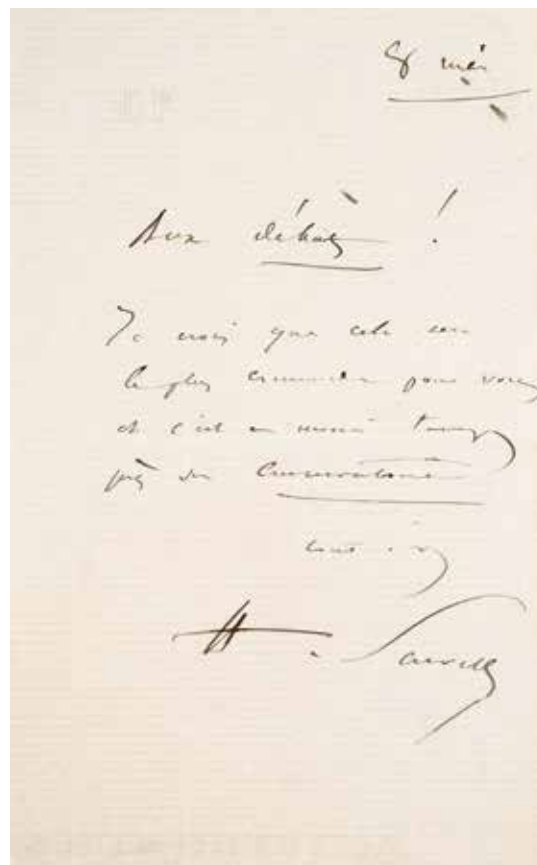 8 mai
Aux débats !
Je crois que cela sera
le plus commode pour vous
et c'est en même temps
près du Conservatoire
tout à v
H.